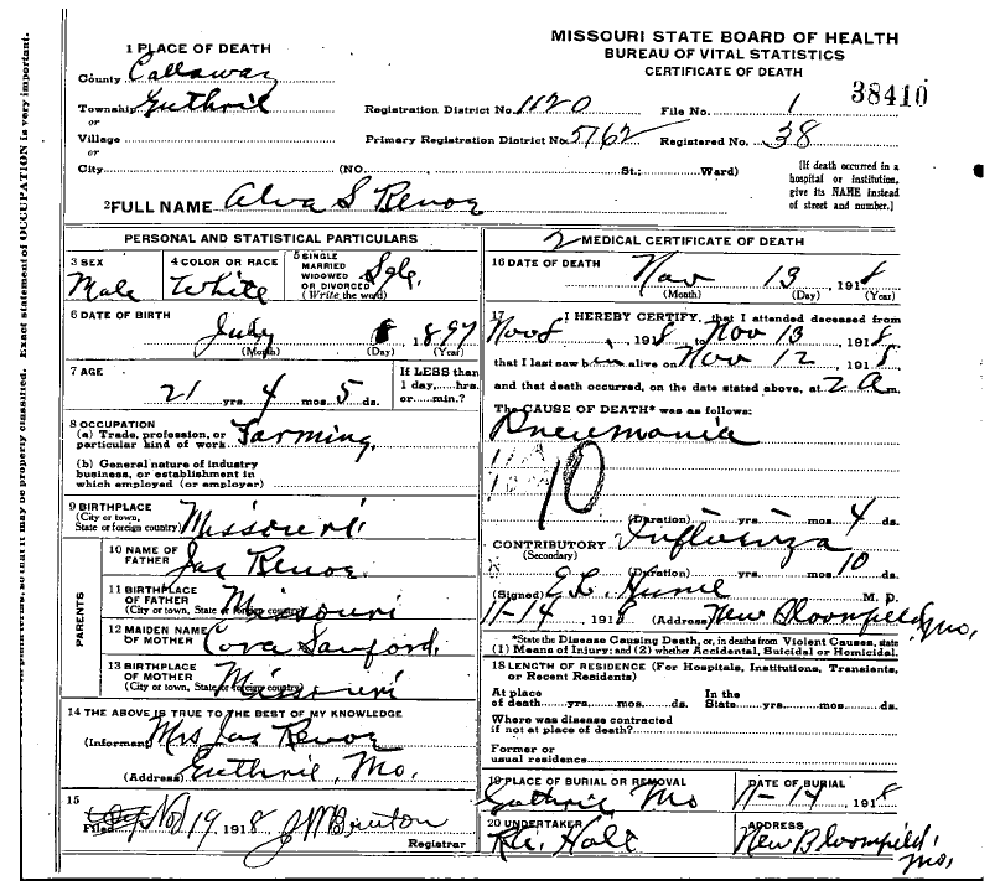 MISSOURI STATE BOARD OF HEALTH
BUREAU OF VITAL STATISTICS
CERTIFICATE OF DEATH
1 PLACE OF DEATH
County Callaway
Township Guthrie
or
Village
or
City (NO. St.; Ward)
Registration District No. 1120 File No. 1 38410
Primary Registration District No. 5762 Registered No. 38
[If death occurred in a
hospital or institution,
give its NAME instead
of street and number.]
2 FULL NAME Alva S Renoe
PERSONAL AND STATISTICAL PARTICULARS
3 SEX
Male
4 COLOR OR RACE
White
5 SINGLE
MARRIED
WIDOWED
OR DIVORCED
(Write the word)
Sgle.
6 DATE OF BIRTH
July 8, 1897
(Month) (Day) (Year)
7 AGE
21 yrs. 4 mos. 5 ds.
If LESS than
1 day,....hrs.
or.....min.?
8 OCCUPATION
(a) Trade, profession, or
particular kind of work Farming
(b) General nature of industry
business, or establishment in
which employed (or employer)
9 BIRTHPLACE
(City or town,
State or foreign country) Missouri
PARENTS
10 NAME OF
FATHER Jas Renoe
11 BIRTHPLACE
OF FATHER
(City or town, State or foreign country) Missouri
12 MAIDEN NAME
OF MOTHER Cora Sanford
13 BIRTHPLACE
OF MOTHER
(City or town, State or foreign country) Missouri
14 THE ABOVE IS TRUE TO THE BEST OF MY KNOWLEDGE
(Informant) Mrs Jas Renoe
(Address) Guthrie, Mo.
15
Filed Nov 19 1918 Registrar
2 MEDICAL CERTIFICATE OF DEATH
16 DATE OF DEATH
Nov 13, 1918
(Month) (Day) (Year)
17 I HEREBY CERTIFY, that I attended deceased from
Nov 8, 1918 to Nov 13 1918
that I last saw him alive on Nov 12, 1918
and that death occurred, on the date stated above, at 2 a m.
The CAUSE OF DEATH* was as follows:
Pneumonia
10
(Duration) yrs. mos. 4 ds.
CONTRIBUTORY Influenza
(Secondary)
(Duration) yrs. mos. 10 ds.
(Signed) M. D.
11-14, 1918 (Address) New Bloomfield, Mo.
*State the Disease Causing Death, or, in deaths from Violent Causes, state
(1) Means of Injury; and (2) whether Accidental, Suicidal or Homicidal.
18 LENGTH OF RESIDENCE (For Hospitals, Institutions, Transients,
or Recent Residents)
At place
of death yrs. mos. ds.
In the
State yrs. mos. ds.
Where was disease contracted
if not at place of death?
Former or
usual residence
19 PLACE OF BURIAL OR REMOVAL
Guthrie Mo
DATE OF BURIAL
11-14, 1918
20 UNDERTAKER
Hall
ADDRESS
New Bloomfield, Mo.